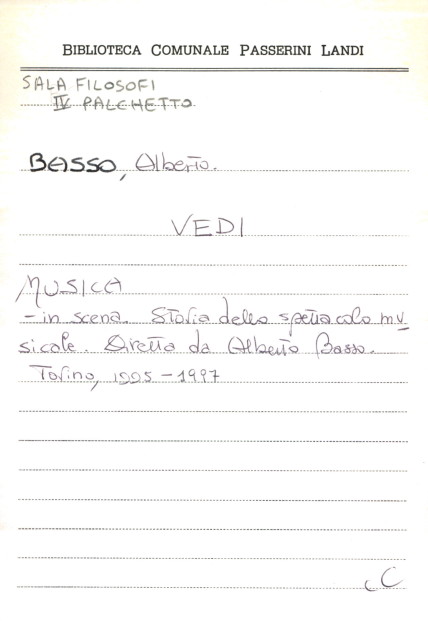 BIBLIOTECA COMUNALE PASSERINI LANDI
SALA FILOSOFI
IV PALCHETTO
BASSO, Alberto.
VEDI
MUSICA
- in scena. Storia dello spettacolo mu
sicale. Diretta da Alberto Basso.
Torino, 1995-1997
C